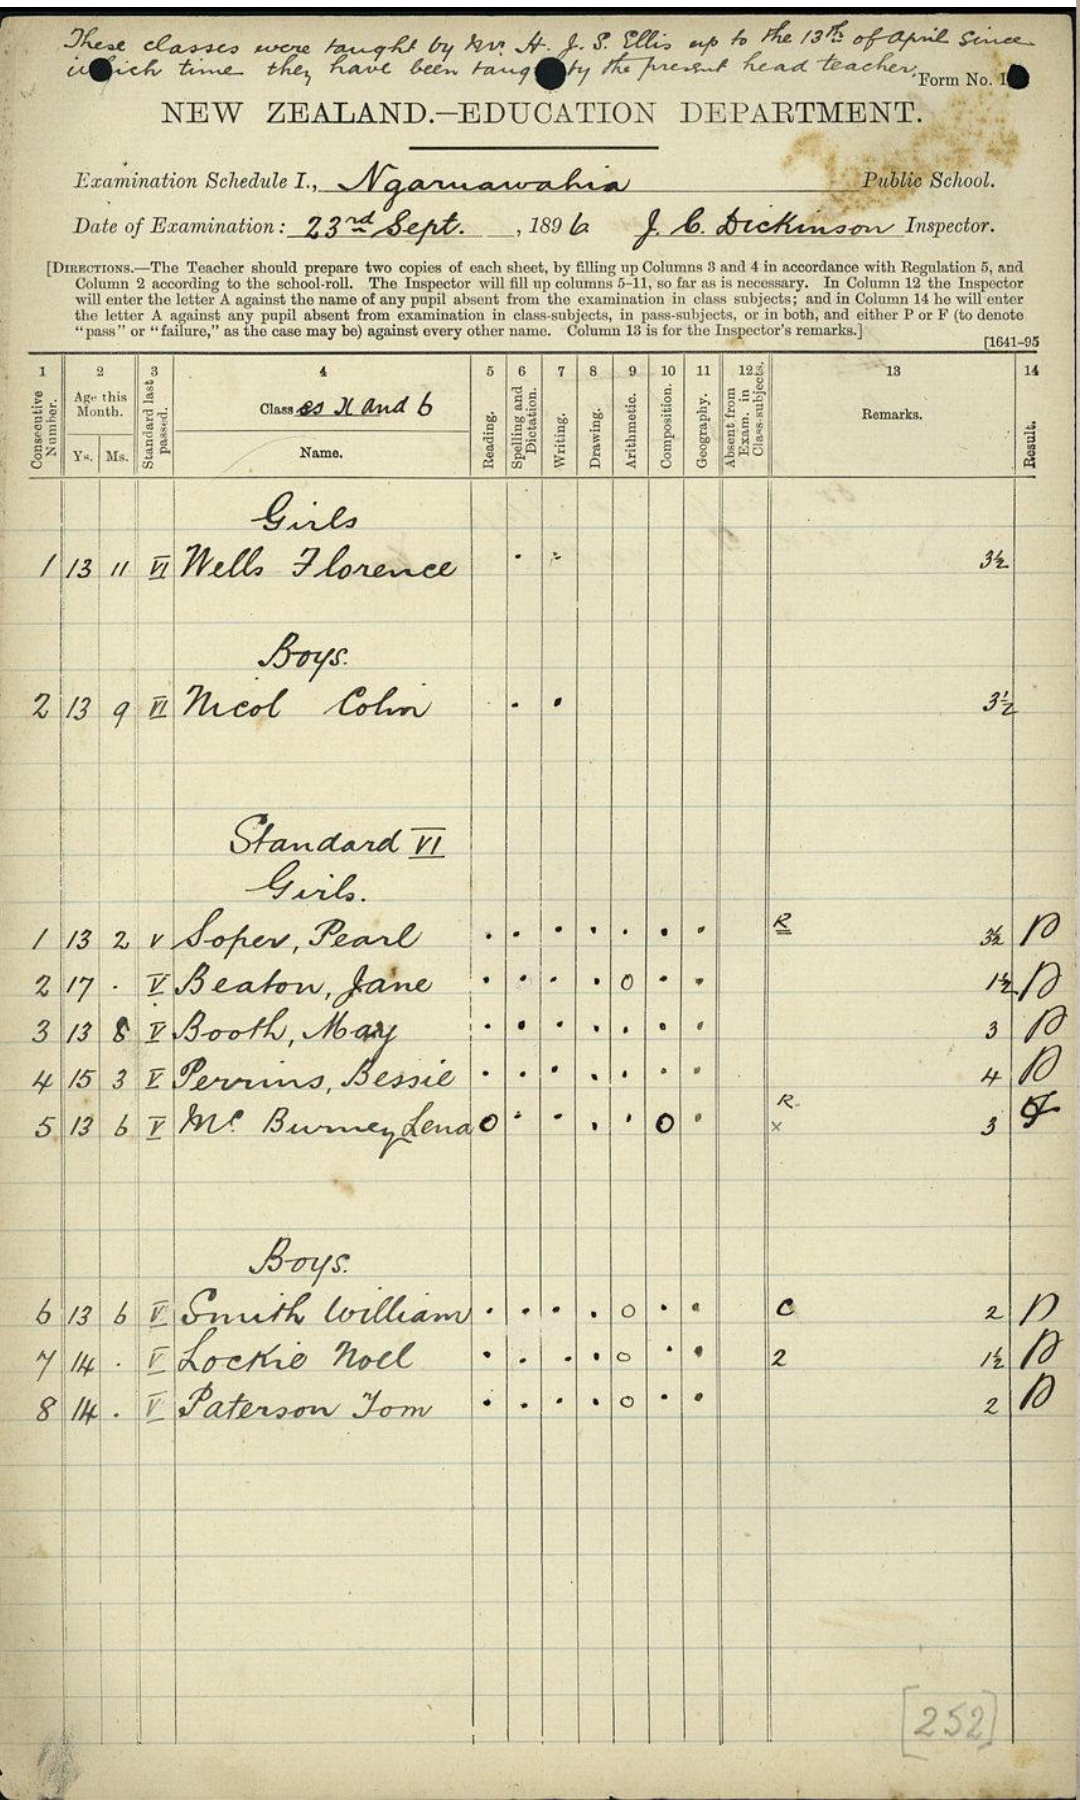 These classes were taught by Mr. H. J. S. Ellis up to the 13th of April since
which time they have been taught by the present head teacher.
Form No. 1
NEW ZEALAND.—EDUCATION DEPARTMENT.
Examination Schedule I., Ngaruawahia Public School.
Date of Examination: 23rd Sept. , 1896 J. C. Dickinson Inspector.
[DIRECTIONS.—The Teacher should prepare two copies of each sheet, by filling up Columns 3 and 4 in accordance with Regulation 5, and
Column 2 according to the school-roll. The Inspector will fill up columns 5–11, so far as is necessary. In Column 12 the Inspector
will enter the letter A against the name of any pupil absent from the examination in class subjects; and in Column 14 he will enter
the letter A against any pupil absent from examination in class-subjects, in pass-subjects, or in both, and either P or F (to denote
"pass" or "failure," as the case may be) against every other name. Column 13 is for the Inspector's remarks.]
[1641–95
1 2 3 4 5 6 7 8 9 10 11 12 13 14
Consecutive Number. Age this Month. Ys. Ms. Standard last passed. Classes and 6 Name. Reading. Spelling and Dictation. Writing. Drawing. Arithmetic. Composition. Geography. Absent from Exam. in Class-subjects. Remarks. Result.
Girls
1 13 11 VI Wells Florence . 3½
Boys.
2 13 9 VI Nicol Colin . . 3½
Standard VI
Girls.
1 13 2 V Soper, Pearl . . . . . . . R 3½ P
2 17 . V Beaton, Jane . . . . o . . 1½ P
3 13 8 V Booth, May . . . . . . . 3 P
4 15 3 V Perrins, Bessie . . . . . . . 4 P
5 13 6 V Mc Burney Lena O . . . . O . R x 3 F
Boys.
6 13 6 V Smith William . . . . o . . C 2 P
7 14 . V Lockie Noel . . . . o . . 2 1½ P
8 14 . V Paterson Tom . . . . o . . 2 P
[252]